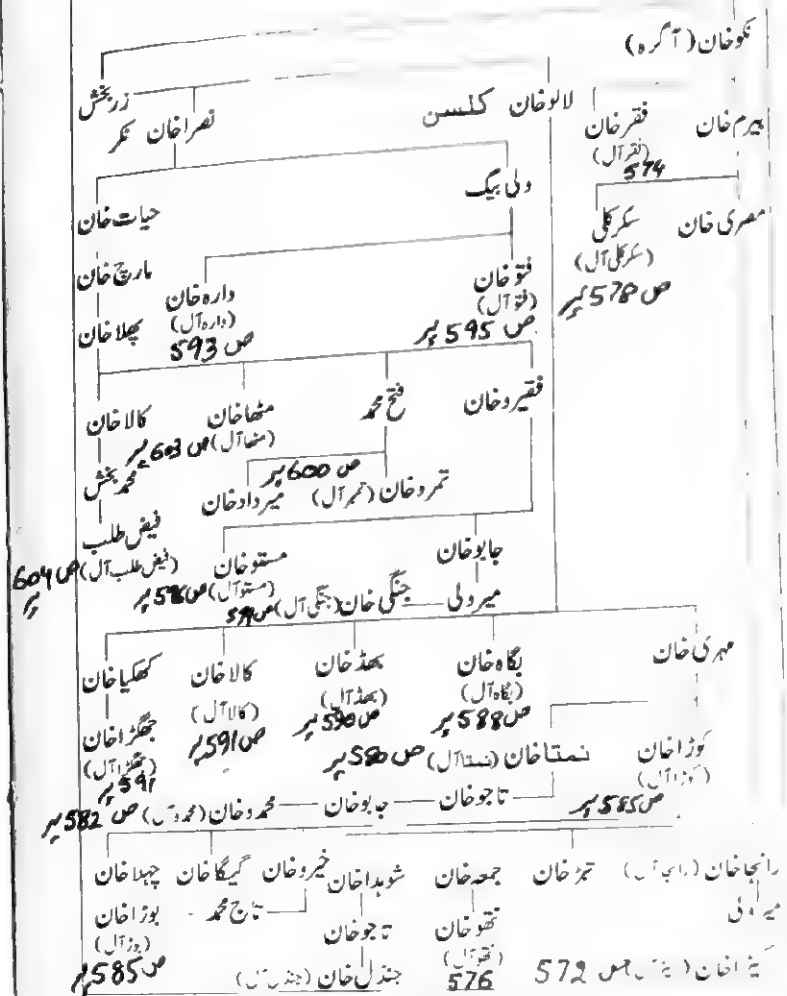 نکوخان (آگرہ)
زربخش
نصراخان نکر
لالوخان کلسن
فقرخان
(فقرآل)
574
بیرم خان
حیات خان
ولی بیگ
سکرکلی
(سکرکلی آل)
ص 578 پر
مصری خان
مارچ خان
دارہ خان
(دارہ آل)
ص 593
فتوخان
(فتوآل)
ص 595 پر
پھلاخان
کالاخان
مٹھاخان
(مٹھاآل) ص 603 پر
فتح محمد
فقیروخان
محمد بخش
ص 600 پر
میردادخان
تمروخان (تمرآل)
فیض طلب
(فیض طلب آل) ص 604 پر
مستوخان
(مستوآل) ص 596 پر
جابوخان
میرولی
جنگی خان (جنگی آل)
کھکیاخان
کالاخان
(کالاآل)
ص 591 پر
بھڈخان
(بھڈآل)
ص 590 پر
بگاہ خان
(بگاہ آل)
ص 588 پر
مہری خان
جھگڑاخان
(جھگڑاآل)
591 پر
نمتاخان (نمتاآل) ص 580 پر
کوڑاخان
(کوڑاآل)
ص 585 پر
تاجوخان
جابوخان
محمدوخان (محمدوآل) ص 582 پر
چہلاخان
گیگاخان
خیروخان
شوہداخان
جمعہ خان
تجڑخان
رانجاخان (رانجاآل)
بوڑاخان
(بوڑآل)
ص 585 پر
تاج محمد
تاجوخان
نتھوخان
(نتھوآل)
576
میرولی
جنڈل خان (جنڈل آل)
ص 572